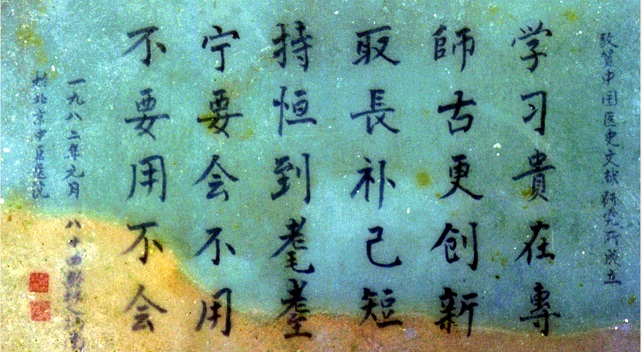 中国医史文献研究所成立
学习貴在專
師古更创新
取長补己短
持恒到耄耋
宁要会不用
不要用不会
一九八二年元月 八十四叟
於北京中医医院